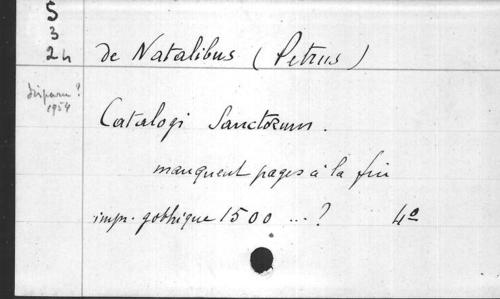 5
3
2h
de Natalibus (Petrus)
disparu ?
1954
Catalogi Sanctorum.
manquent pages à la fin
impr. gothique 1500 ... ? 4º